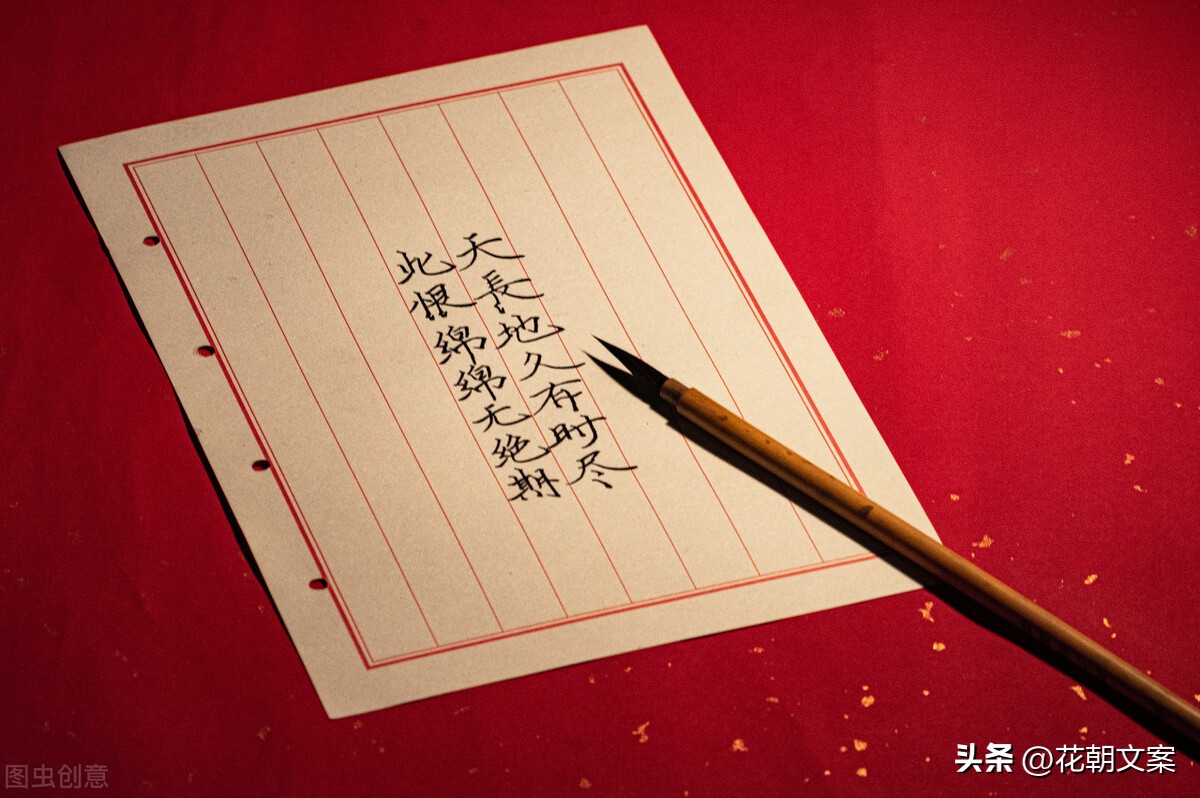 天長地久有时尽
此恨绵绵无绝期
图虫创意
头条 @花朝文案